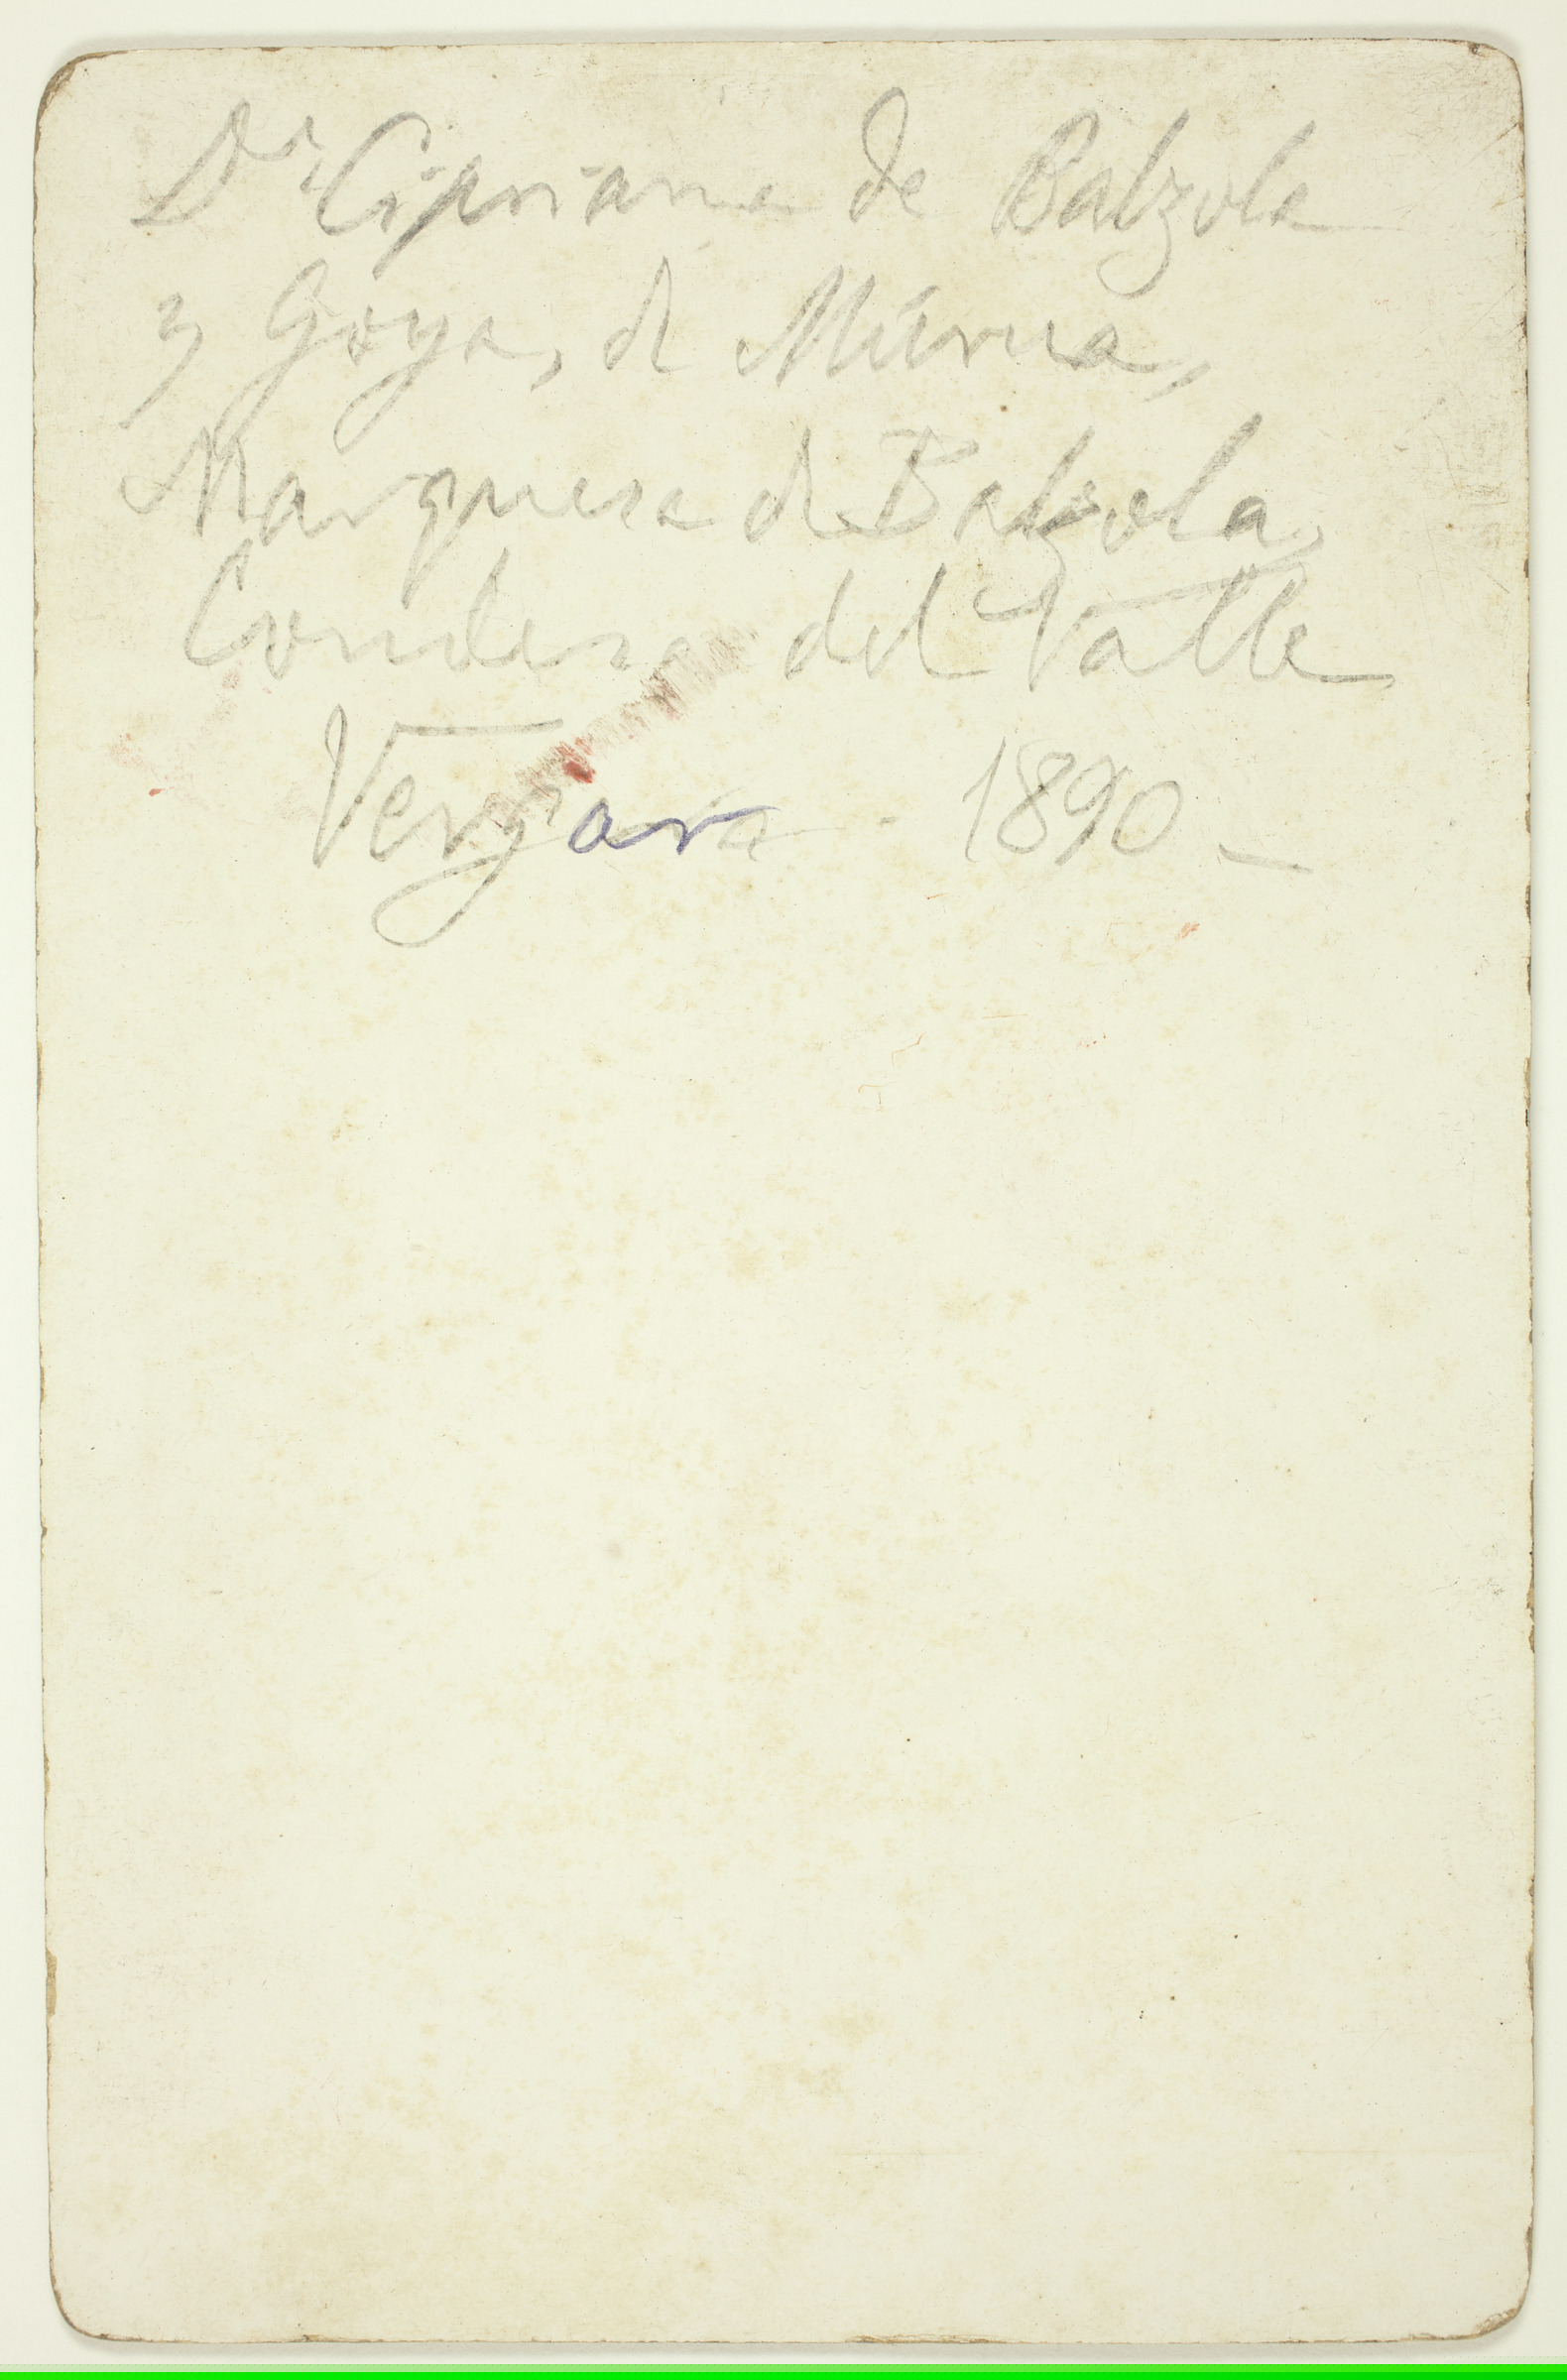 Dª Cipriana de Balzola
y Goya, de Múrua,
Marquesa de Balzola,
Condesa del Valle
Vergara - 1890 —